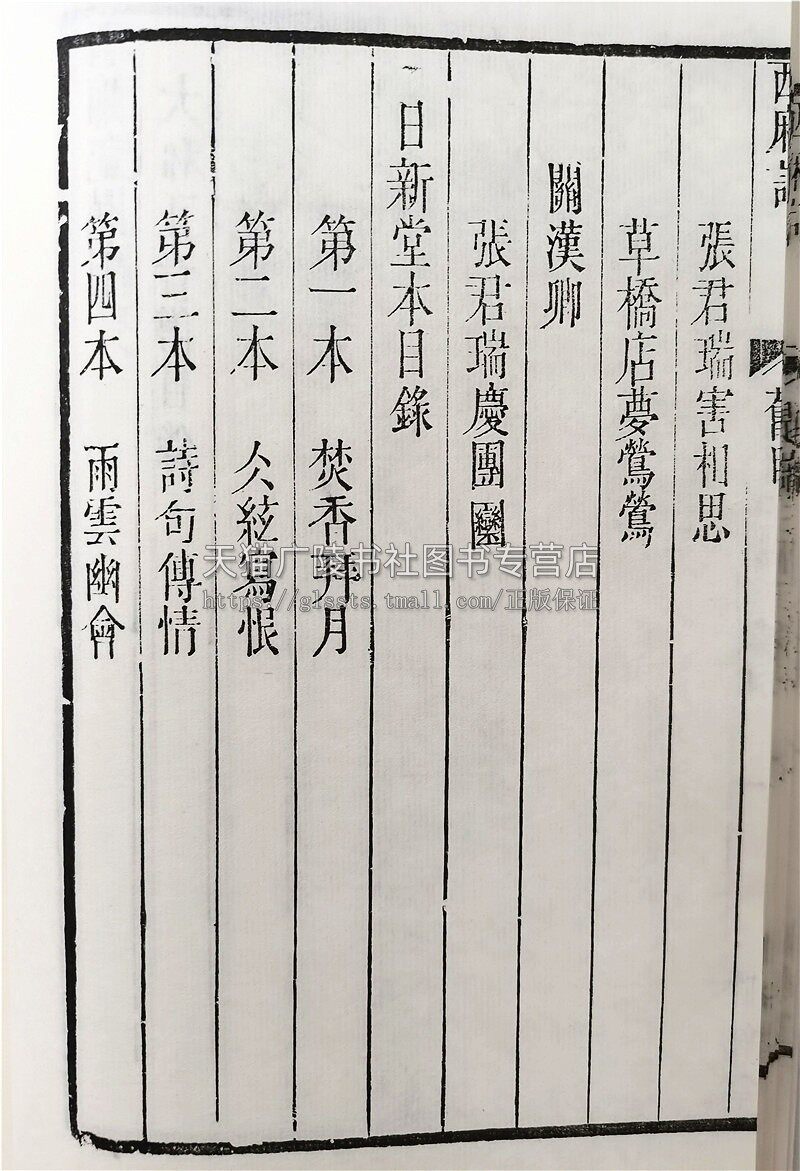 張君瑞害相思
草橋店夢鶯鶯
關漢卿
張君瑞慶團圞
一日新堂本目錄
第一本 焚香拜月
第二本 仌絃寫恨
第三本 詩句傳情
第四本 雨雲幽會
天猫广陵书社图书专营店
https://glssts.tmall.com/正版保证